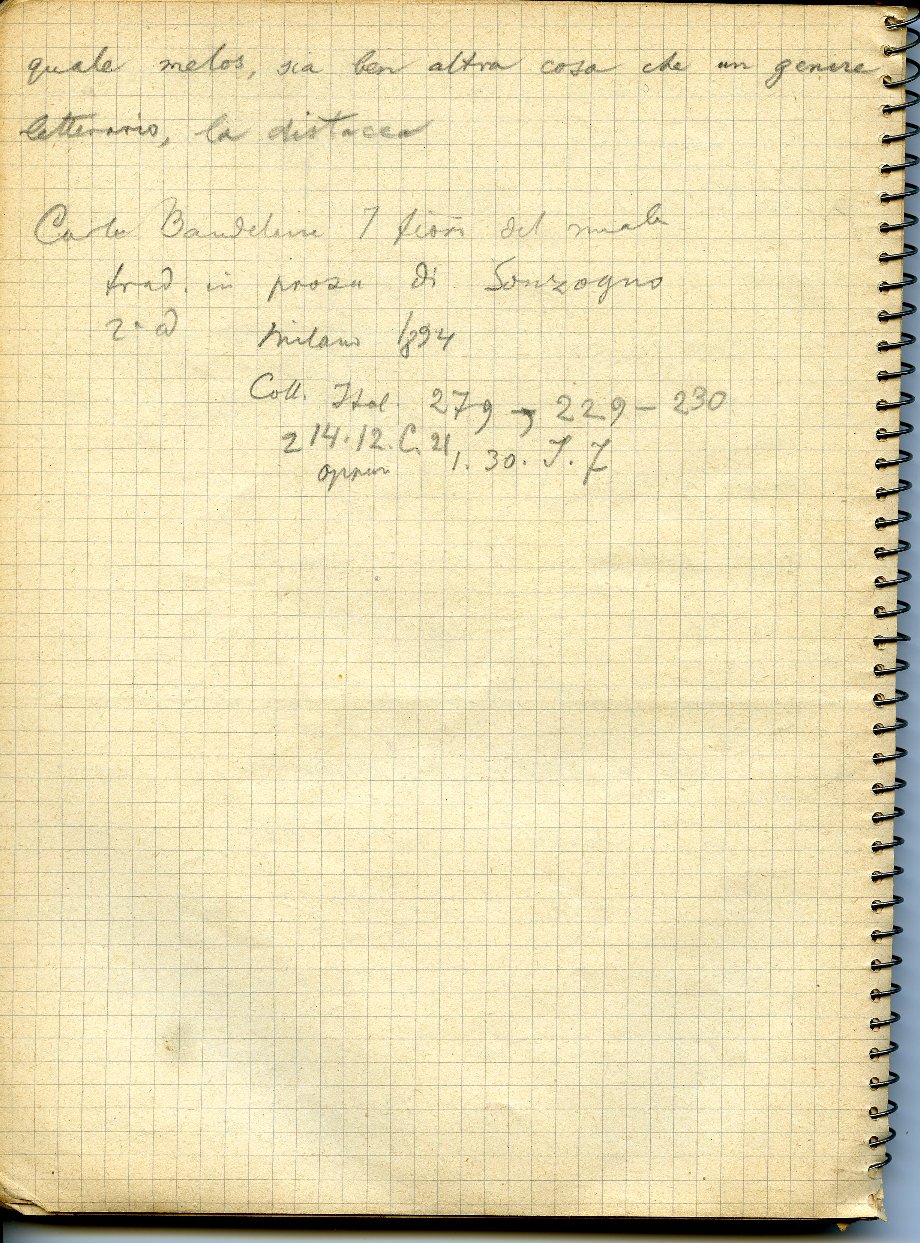 quale melos, sia ben altra cosa che un genere
letterario, la distacca
Carlo Baudelaire I fiori del male
trad. in prosa di Sonzogno
2ª ed Milano 1894
Coll. Ital. 279 - 229 - 230
2 14.12.C.21
oppure 1. 30. I. 7